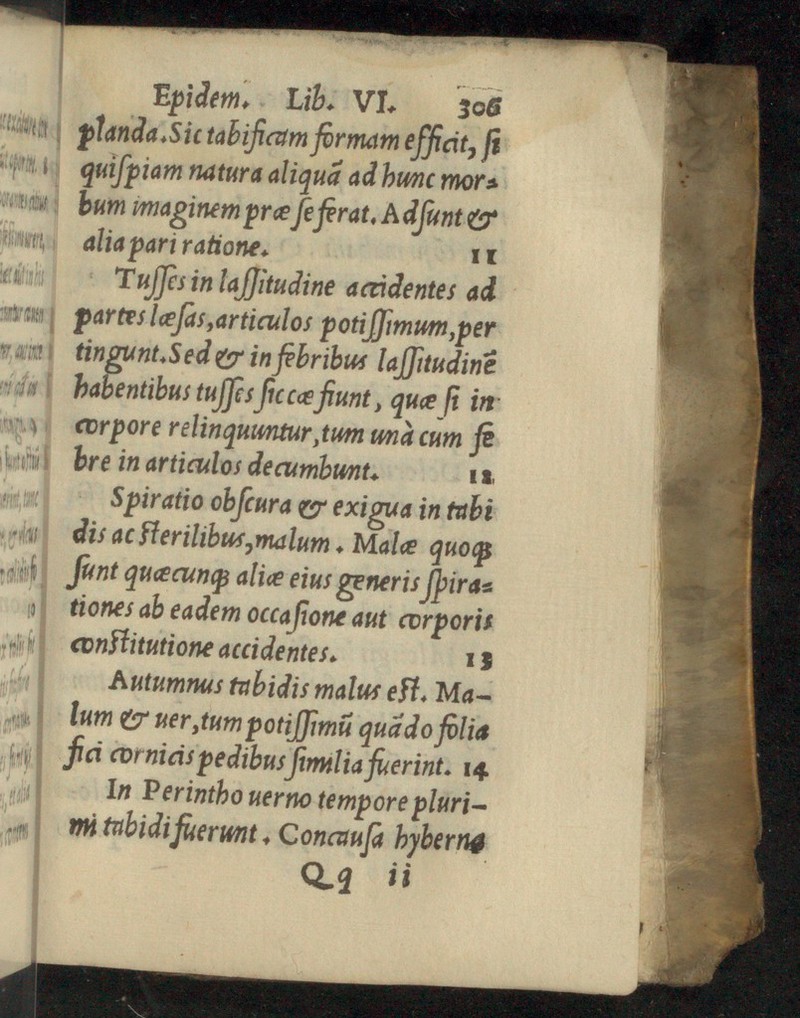 Epidem. Lib. VI. 306
planda. Sic tabificam formam efficit, ſi
quiſpiam natura aliquã ad hunc mor⸗
bum imaginem præ ſe ferat. Adſunt &
alia pari ratione. 11
Tuſſes in laſſitudine accidentes ad
partes læſas, articulos potiſſimum, per
tingunt. Sed & in febribus laſſitudinẽ
habentibus tuſſes ſiccæ fiunt, quæ ſi in
corpore relinquuntur, tum unà cum fe
bre in articulos decumbunt. 12
Spiratio obſcura & exigua in tabi
dis ac ſterilibus, malum. Malæ quoqꝫ
ſunt quæcunqꝫ aliæ eius generis ſpira⸗
tiones ab eadem occaſione aut corporis
conſtitutione accidentes. 13
Autumnus tabidis malus eſt. Ma-
lum & uer, tum potiſſimũ quãdo folia
fici cornicis pedibus ſimilia fuerint. 14
In Perintho uerno tempore pluri-
mi tabidi fuerunt. Concauſa hyberna
Qq ii